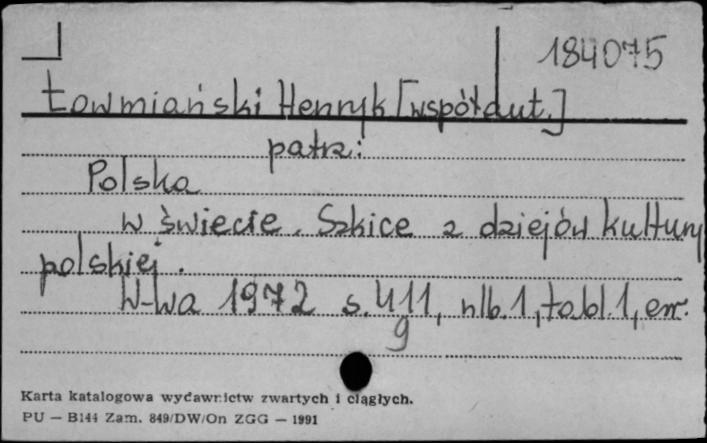 184075
Łowmiański Henryk [współaut.]
patrz:
Polska
w świecie. Szkice z dziejów kultury
polskiej.
W-wa 1972 s. 411, nlb.1, tabl.1, err.
9
Karta katalogowa wydawnictw zwartych i ciągłych.
PU — B144 Zam. 849/DW/On ZGG — 1991